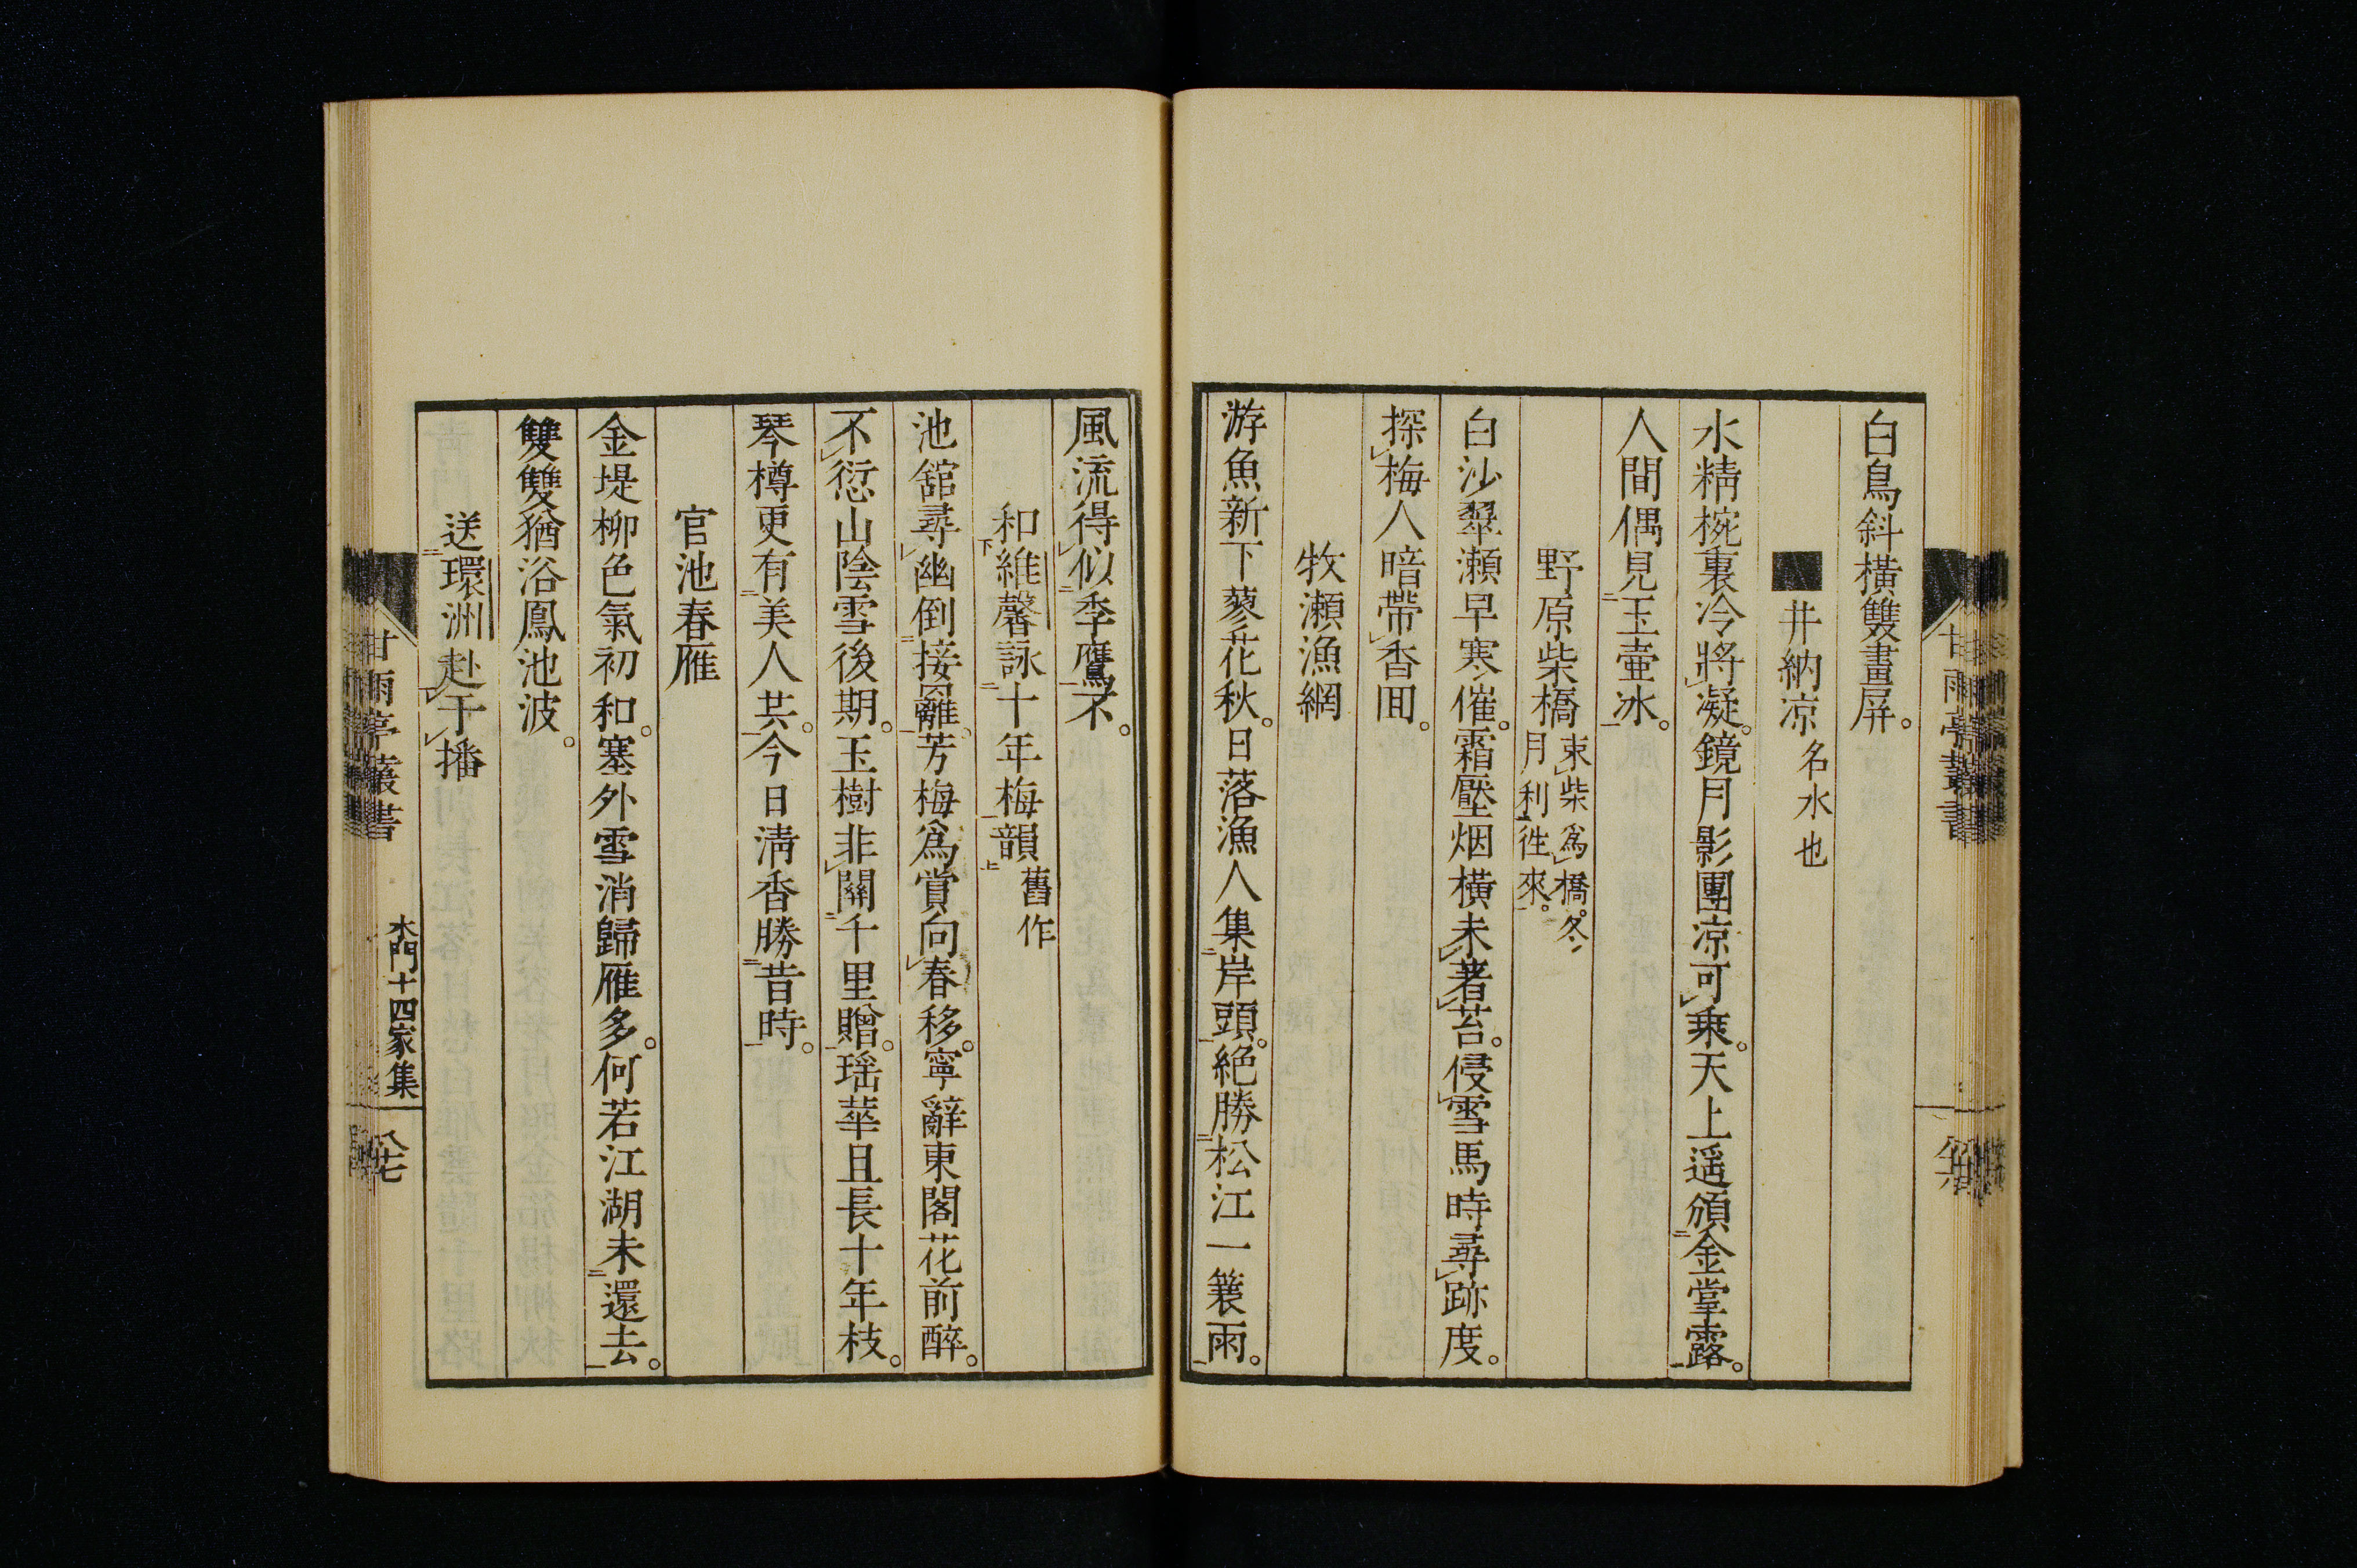 白鳥斜橫雙畫屏。
■井納涼名水也
水精椀裏冷將凝。鏡月影團涼可乘。天上遥頒金掌露。
人間偶見玉壷冰。
野原柴橋束柴爲橋。冬
月利徃來。
白沙翠瀬早寒催。霜壓烟橫未著苔。侵雪馬時尋跡度。
探梅人暗帶香囬。
牧瀬漁網
游魚新下蓼花秋。日落漁人集岸頭。絶勝松江一簔雨。
風流得似季鷹不。
和維馨詠十年梅韻舊作
池舘尋幽倒接䍦。芳梅爲賞向春移。寧辭東閣花前醉。
不愆山陰雪後期。玉樹非關千里贈。瑶華且長十年枝。
琴樽更有美人共。今日淸香勝昔時。
官池春雁
金堤柳色氣初和。塞外雪消歸雁多。何若江湖未還去。
雙雙猶浴鳳池波。
送環洲赴于播
甘雨亭叢書
木門十四家集
八七